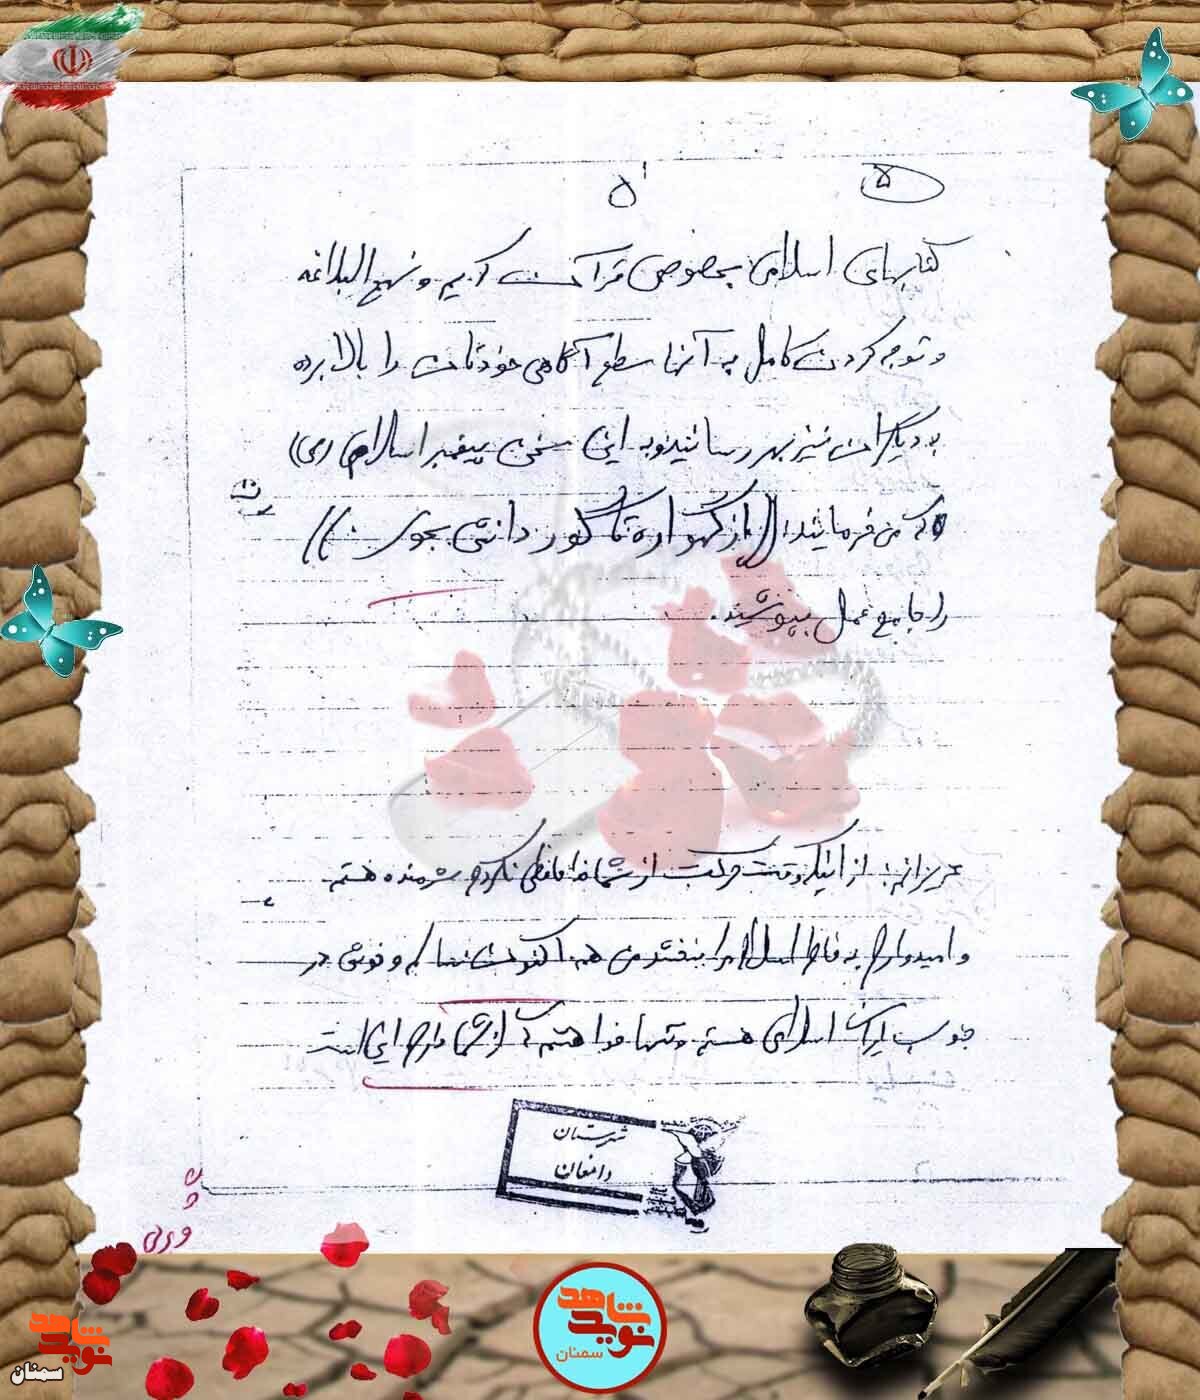 ۵
۵
کتابهای اسلامی بخصوص قرآن کریم و نهج البلاغه
و توجه کردن کامل به آنها سطح آگاهی خودتان را بالا برده
به دیگران نیز بهر رسانید و به این سخن پیغمبر اسلام (ص)
که می فرمایند: ((از گهواره تا گور دانش بجوی.))
را جامع عمل بپوشید.
عزیزانم: از اینکه وقت حرکت از شما خداحافظی نکردم شرمنده هستم
و امیدوارم به خاطر اسلام مرا ببخشید من هم اکنون سالم و خوش در
جنوب ایران اسلامی هستم و تنها خواهشم که از شما دارم این است
شهرستان
دامغان
نوید شاهد
سمنان
نوید شاهد
سمنان